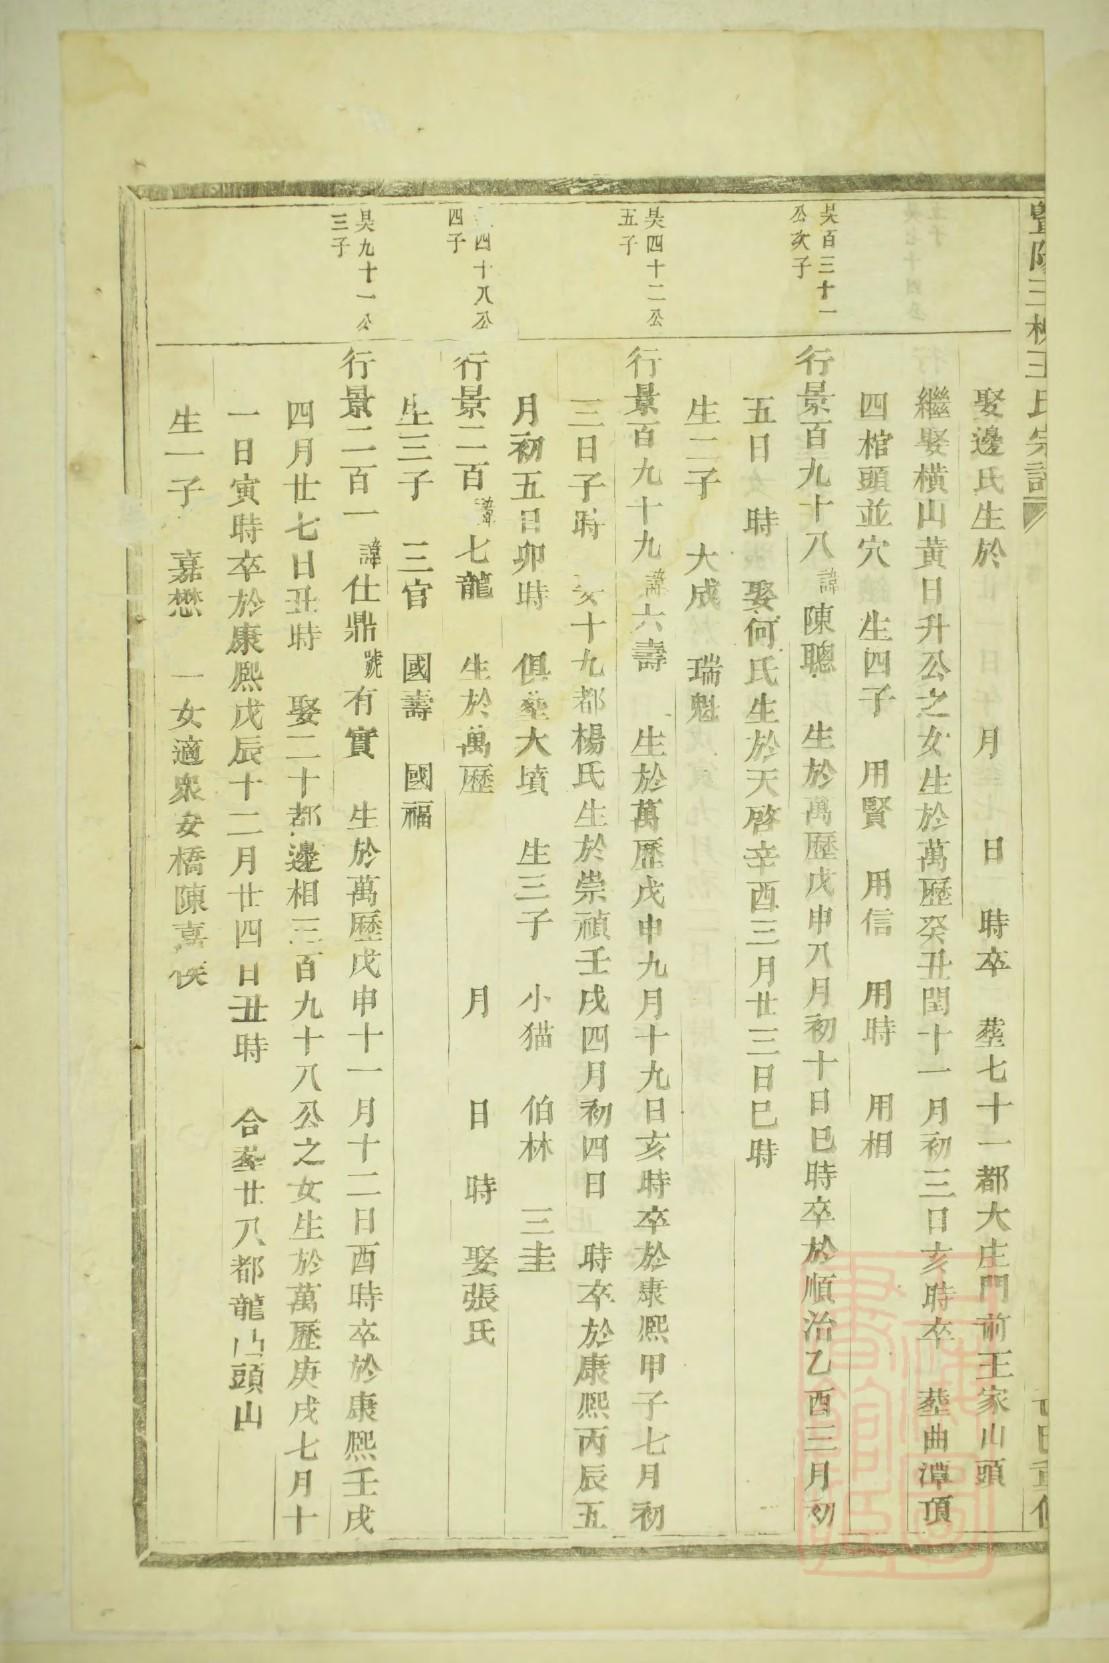 暨陽三槐王氏宗譜
娶邊氏生於 月 日 時卒 塟七十一都大庄門前王家山頭
繼娶橫山黃日升公之女生於萬歷癸丑閏十一月初三日亥時卒 塟曲潭頂
四棺頭並穴 生四子 用賢 用信 用時 用相
吳百三十一
公次子
行景百九十八諱陳聰 生於萬歷戊申八月初十日巳時卒於順治乙酉三月初
五日 時 娶何氏生於天啓辛酉三月廿三日巳時
生二子 大成 瑞魁
吳四十二公
五子
行景百九十九諱六壽 生於萬歷戊申九月十九日亥時卒於康熙甲子七月初
三日子時 娶十九都楊氏生於崇禎壬戌四月初四日 時卒於康熙丙辰五
月初五日卯時 俱塟大墳 生三子 小猫 伯林 三圭
四十八公
四子
行景二百諱七龍 生於萬歷 月 日 時 娶張氏
生三子 三官 國壽 國福
吳九十一公
三子
行景二百一諱仕鼎號有實 生於萬歷戊申十一月十二日酉時卒於康熙壬戌
四月廿七日丑時 娶二十都邊相三百九十八公之女生於萬歷庚戌七月十
一日寅時卒於康熙戊辰十二月廿四日丑時 合塟廿八都龍山頭山
生一子 嘉懋 一女適衆安橋陳嘉侯